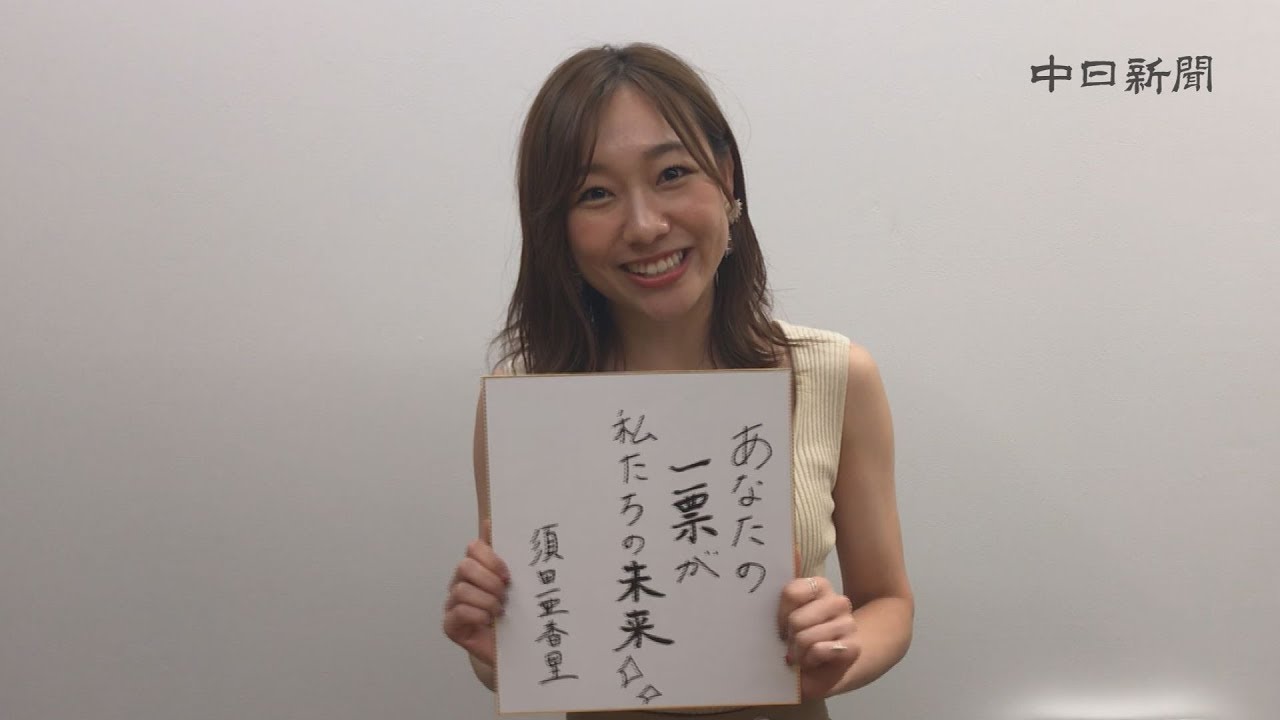 中日新聞
あなたの
一票が
私たちの未来
須田亜香里